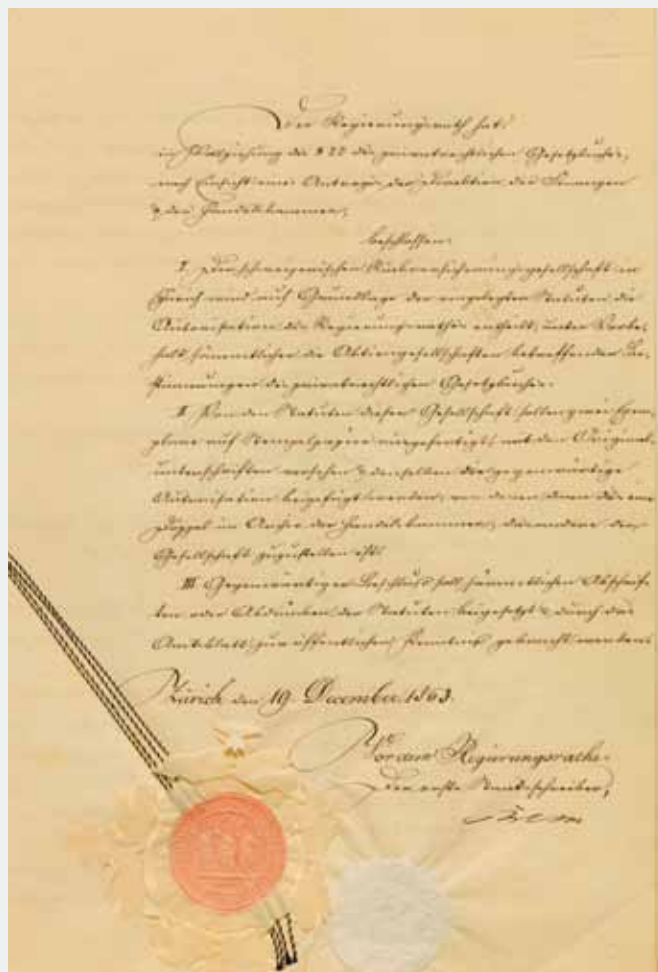 Der Regierungsrath hat,
in Vollziehung des § 22 des privatrechtlichen Gesetzbuches,
nach Einsicht eines Antrages der Direktion der Finanzen
& der Handelskammer,
beschlossen:
I. Der schweizerischen Rückversicherungsgesellschaft in
Zürich wird auf Grundlage der vorgelegten Statuten die
Autorisation des Regierungsrathes ertheilt, unter Vorbe-
halt sämmtlicher die Aktiengesellschaften betreffenden Be-
stimmungen des privatrechtlichen Gesetzbuches.
II. Von den Statuten dieser Gesellschaft sollen zwei Exem-
plare auf Stempelpapier ausgefertigt, mit den Original-
unterschriften versehen & denselben die gegenwärtige
Autorisation beigefügt werden, von denen dann das eine
Doppel im Archiv der Handelskammer, das andere der
Gesellschaft zuzustellen ist.
III. Gegenwärtiger Beschluß soll sämmtlichen Abschrif-
ten oder Abdrücken der Statuten beigesetzt & durch das
Amtsblatt zur öffentlichen Kenntniß gebracht werden.
Zürich den 19. December 1863.
Vor dem Regierungsrathe.
Der erste Staatsschreiber,